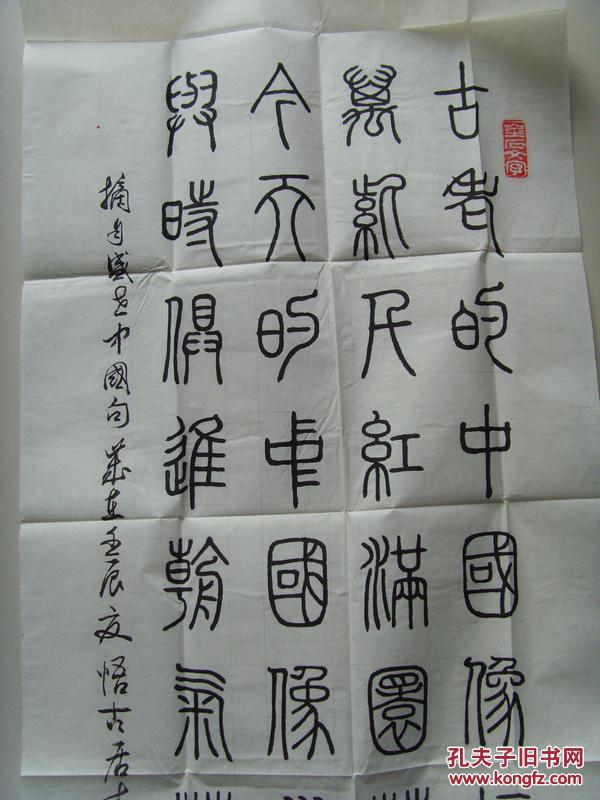 金石文字
古老的中國像
萬紫千紅滿園
今天的中國像
與時俱進朝氣
摘自盛世中國句 歲在壬辰夏 悟古居
孔夫子旧书网
www.kongfz.com